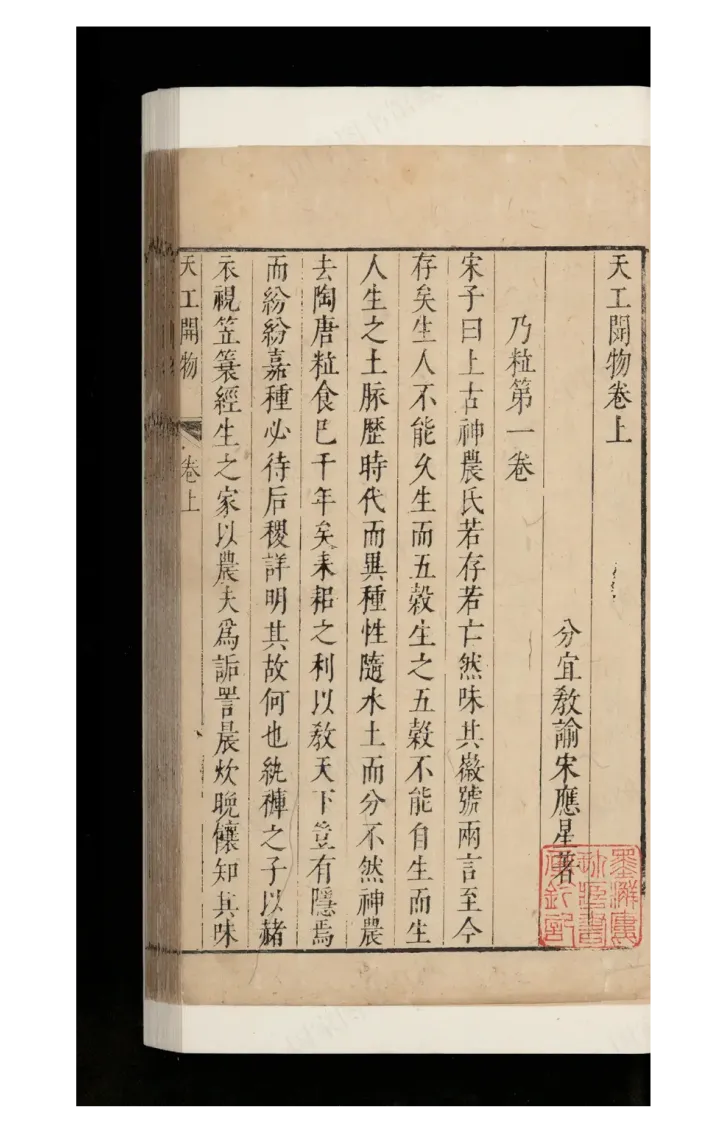 天工開物卷上
分宜教諭宋應星著
乃粒第一卷
宋子曰上古神農氏若存若亡然味其徽號兩言至今
存矣生人不能久生而五穀生之五穀不能自生而生
人生之土脉歷時代而異種性隨水土而分不然神農
去陶唐粒食已千年矣耒耜之利以教天下豈有隱焉
而紛紛嘉種必待后稷詳明其故何也紈褲之子以赭
衣視笠簑經生之家以農夫爲詬詈晨炊晚饟知其味
天工開物 卷上